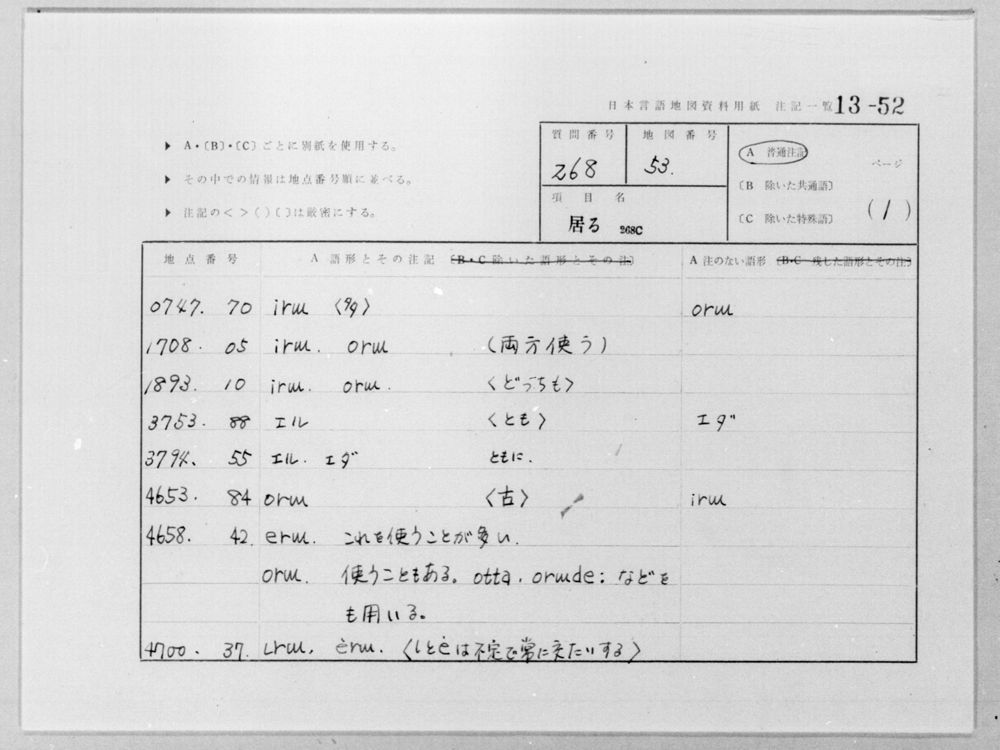 日本言語地図資料用紙 注記一覧 13-52
▶ A・〔B〕・〔C〕ごとに別紙を使用する。
▶ その中での情報は地点番号順に並べる。
▶ 注記の< >( )〔 〕は厳密にする。
質問番号 地図番号
268 53.
項目名
居る 268C
A 普通注記 ページ
〔B 除いた共通語〕
〔C 除いた特殊語〕 (1)
地点番号 A 語形とその注記 〔B・C 除いた語形とその注〕 A 注のない語形 〔B・C 残した語形とその注〕
0747. 70 irɯ 〈多〉 orɯ
1708. 05 irɯ. orɯ (両方使う)
1893. 10 irɯ. orɯ. 〈どっちも〉
3753. 88 エル 〈とも〉 エダ
3794. 55 エル. エダ ともに.
4653. 84 orɯ 〈古〉 irɯ
4658. 42 erɯ. これを使うことが多い.
orɯ. 使うこともある。otta. orɯde: などを
も用いる。
4700. 37. ιrɯ. ėrɯ. 〈ιとėは不定で常に交たいする〉